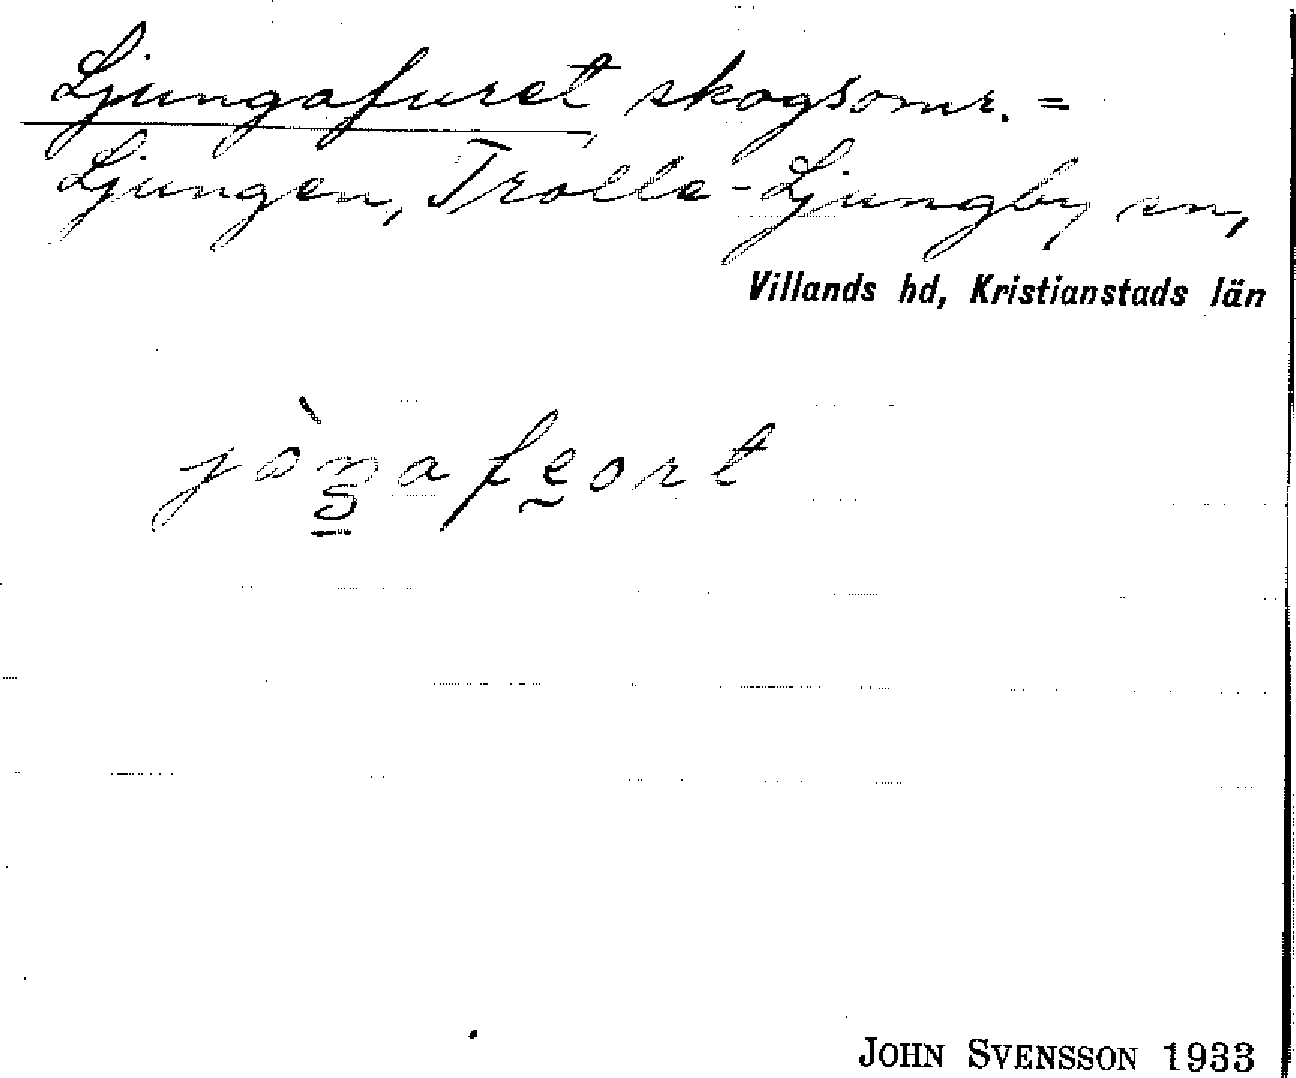 Ljungafuret skogsomr. =
Ljungen, Trolle-Ljungby sn,
Villands hd, Kristianstads län
JOHN SVENSSON 1933